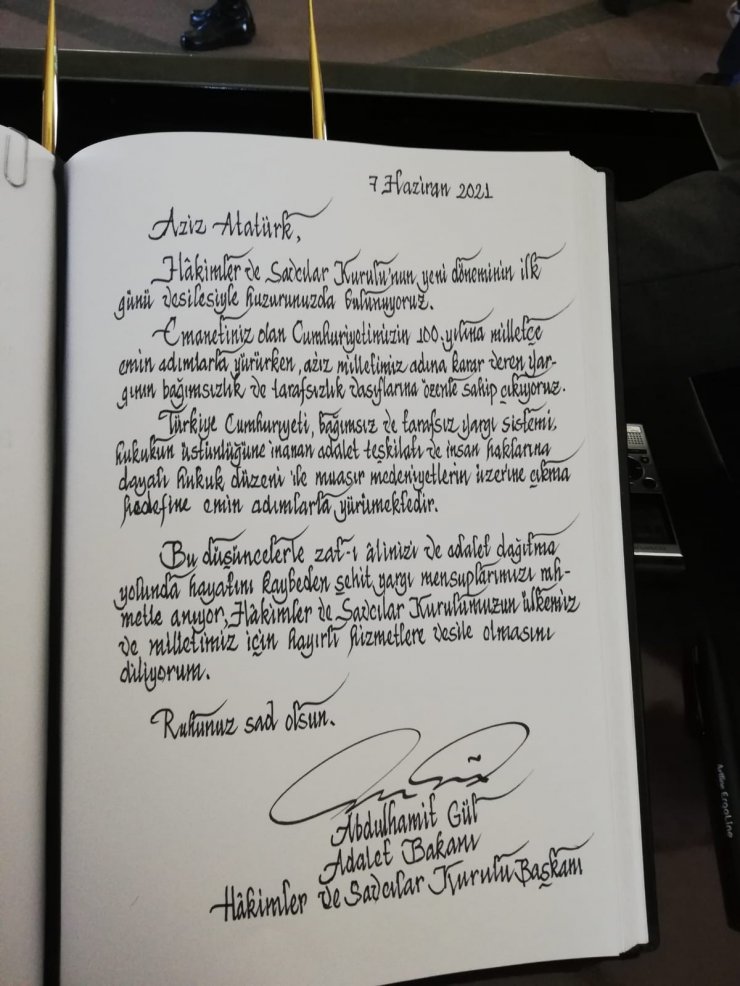 7 Haziran 2021
Aziz Atatürk,
Hâkimler ve Savcılar Kurulu'nun yeni döneminin ilk
günü vesilesiyle huzurunuzda bulunuyoruz.
Emanetiniz olan Cumhuriyetimizin 100. yılına milletçe
emin adımlarla yürürken, aziz milletimiz adına karar veren yar-
gının bağımsızlık ve tarafsızlık vasıflarına özenle sahip çıkıyoruz.
Türkiye Cumhuriyeti, bağımsız ve tarafsız yargı sistemi,
hukukun üstünlüğüne inanan adalet teşkilatı ve insan haklarına
dayalı hukuk düzeni ile muasır medeniyetlerin üzerine çıkma
hedefine emin adımlarla yürümektedir.
Bu düşüncelerle zat-ı âlinizi ve adalet dağıtma
yolunda hayatını kaybeden şehit yargı mensuplarımızı rah-
metle anıyor, Hâkimler ve Savcılar Kurulumuzun ülkemiz
ve milletimiz için hayırlı hizmetlere vesile olmasını
diliyorum.
Ruhunuz şad olsun.
Abdulhamit Gül
Adalet Bakanı
Hâkimler ve Savcılar Kurulu Başkanı
Artline ErgoLine